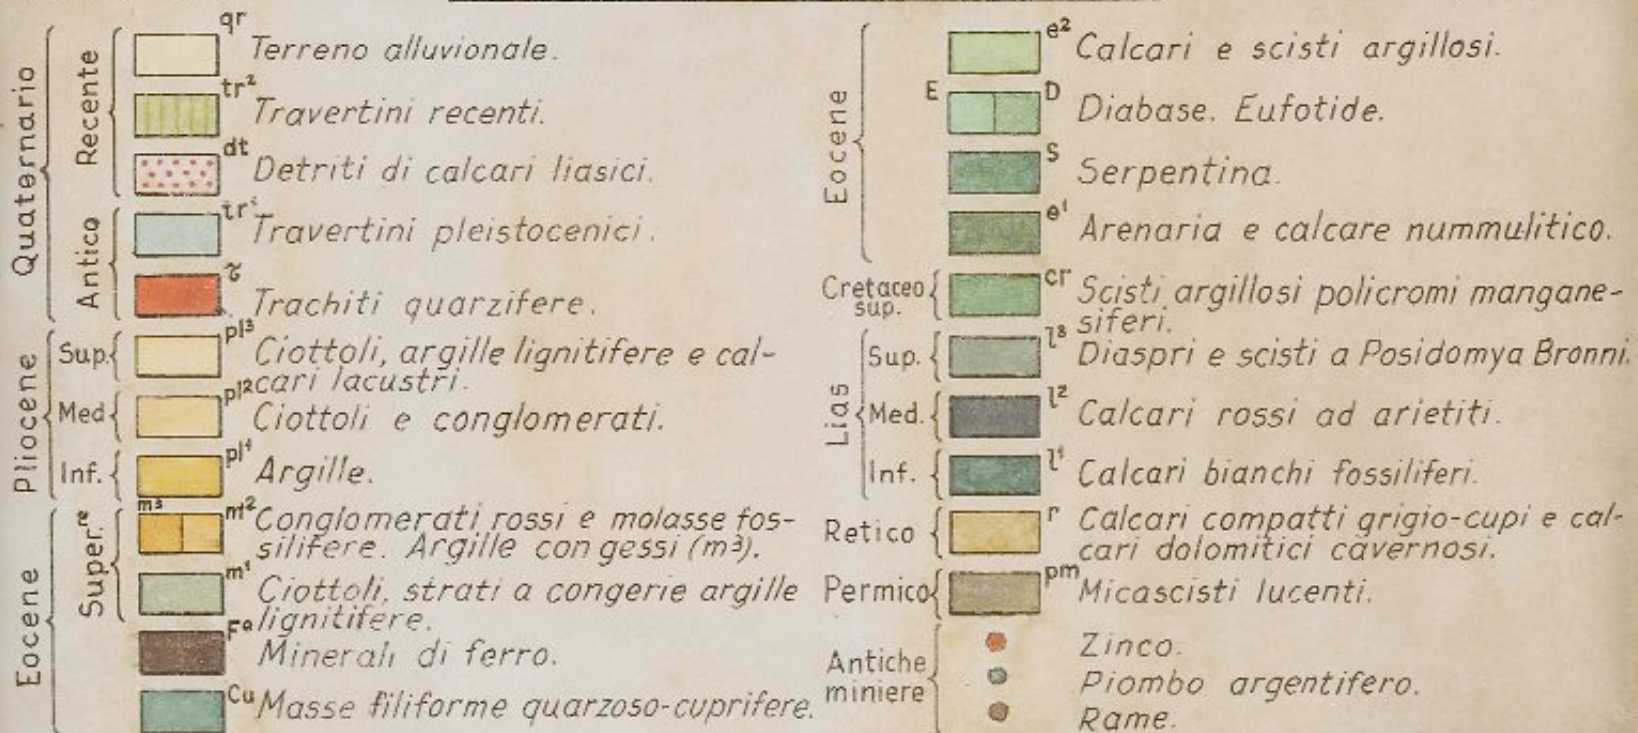 Quaternario
Recente
qr Terreno alluvionale.
tr² Travertini recenti.
dt Detriti di calcari liasici.
Antico
tr¹ Travertini pleistocenici.
τ Trachiti quarzifere.
Pliocene
Sup. pl³ Ciottoli, argille lignitifere e cal-
cari lacustri.
Med pl² Ciottoli e conglomerati.
Inf. pl¹ Argille.
Eocene
Super.re
m³ m² Conglomerati rossi e molasse fos-
silifere. Argille con gessi (m³).
m¹ Ciottoli, strati a congerie argille
lignitifere.
Fe Minerali di ferro.
Cu Masse filiforme quarzoso-cuprifere.
Eocene
e² Calcari e scisti argillosi.
E D Diabase. Eufotide.
S Serpentina.
e¹ Arenaria e calcare nummulitico.
Cretaceo
sup.
cr Scisti argillosi policromi mangane-
siferi.
Lias
Sup. l³ Diaspri e scisti a Posidomya Bronni.
Med. l² Calcari rossi ad arietiti.
Inf. l¹ Calcari bianchi fossiliferi.
Retico r Calcari compatti grigio-cupi e cal-
cari dolomitici cavernosi.
Permico pm Micascisti lucenti.
Antiche
miniere
Zinco.
Piombo argentifero.
Rame.